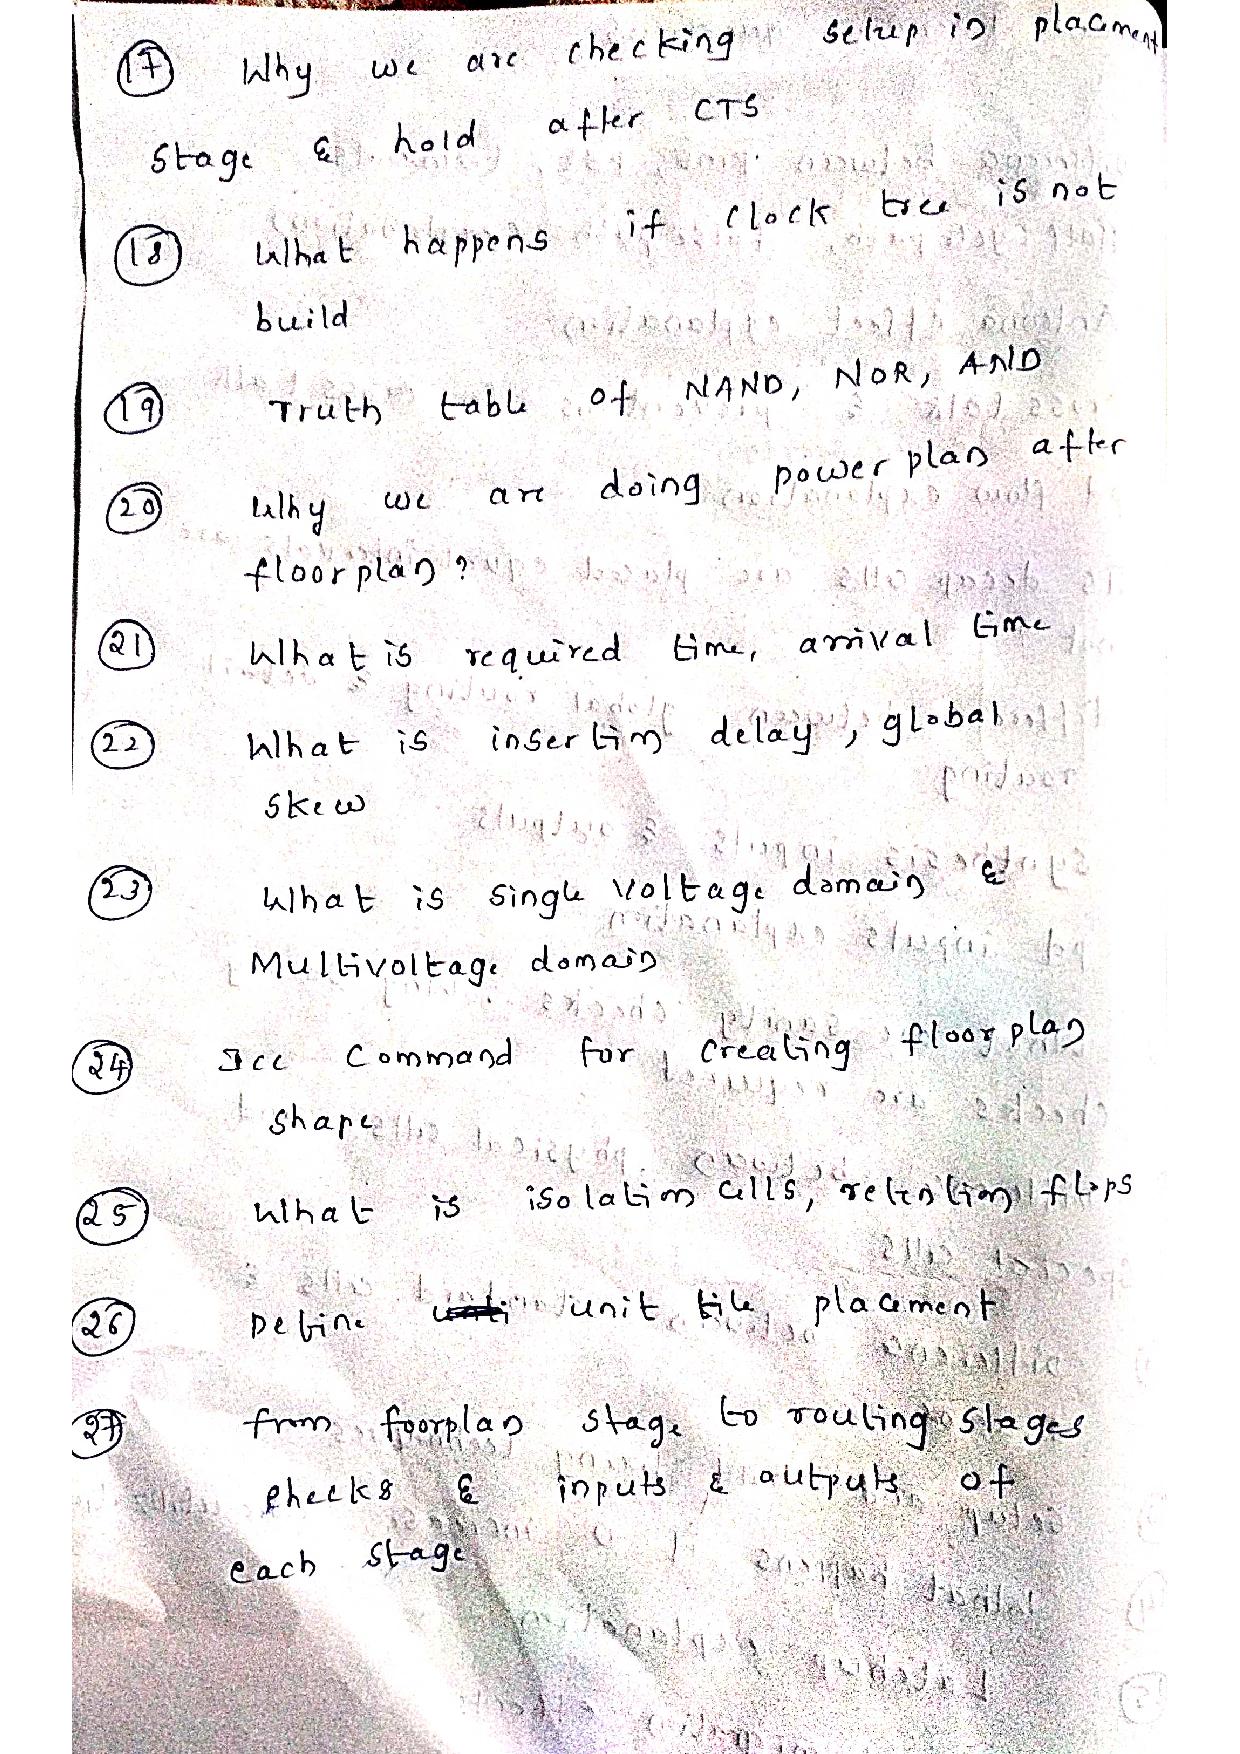 17 Why we are checking setup in placement
stage & hold after CTS
18 What happens if clock tree is not
build
19 Truth table of NAND, NOR, AND
20 Why we are doing power plan after
floorplan?
21 What is required time, arrival time
22 What is insertion delay, global
skew
23 What is single voltage domain &
Multivoltage domain
24 Icc command for creating floorplan
shape
25 What is isolation cells, retention flops
26 Define unit tile placement
27 from foorplan stage to routing stages
checks & inputs & outputs of
each stage